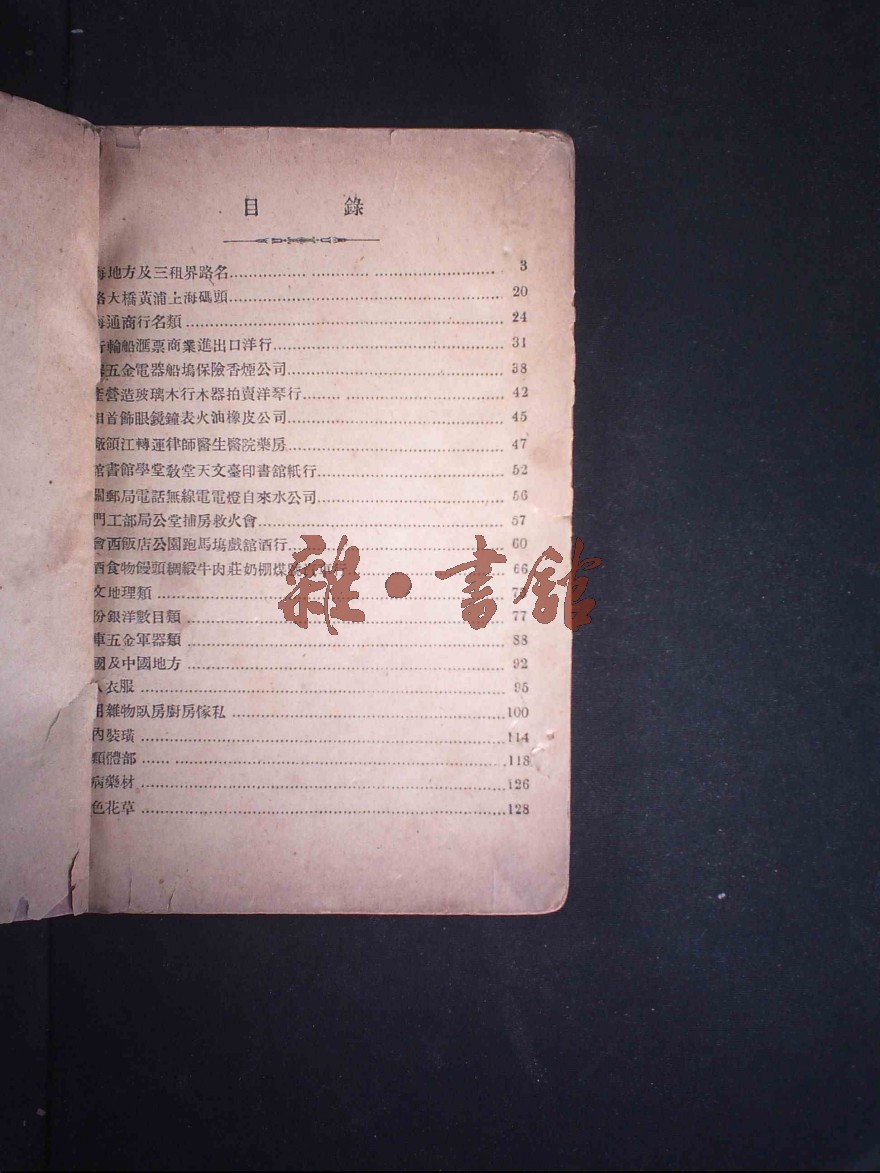 目 錄
海地方及三租界路名 3
路大橋黃浦上海碼頭 20
海通商行名類 24
行輪船滙票商業進出口洋行 31
五金電器船塢保險香煙公司 38
營造玻璃木行木器拍賣洋琴行 42
相首飾眼鏡鐘表火油橡皮公司 45
廠領江轉運律師醫生醫院藥房 47
館書館學堂敎堂天文臺印書舘紙行 52
關郵局電話無線電電燈自來水公司 56
門工部局公堂捕房救火會 57
會西飯店公園跑馬塲戲舘酒行 60
酒食物饅頭綢緞牛肉莊奶棚煤 行 66
文地理類
份銀洋數目類 77
車五金軍器類 88
國及中國地方 92
衣服 95
用雜物臥房廚房傢私 100
內裝璜 114
類體部 118
病藥材 126
色花草 128
雜·書舘